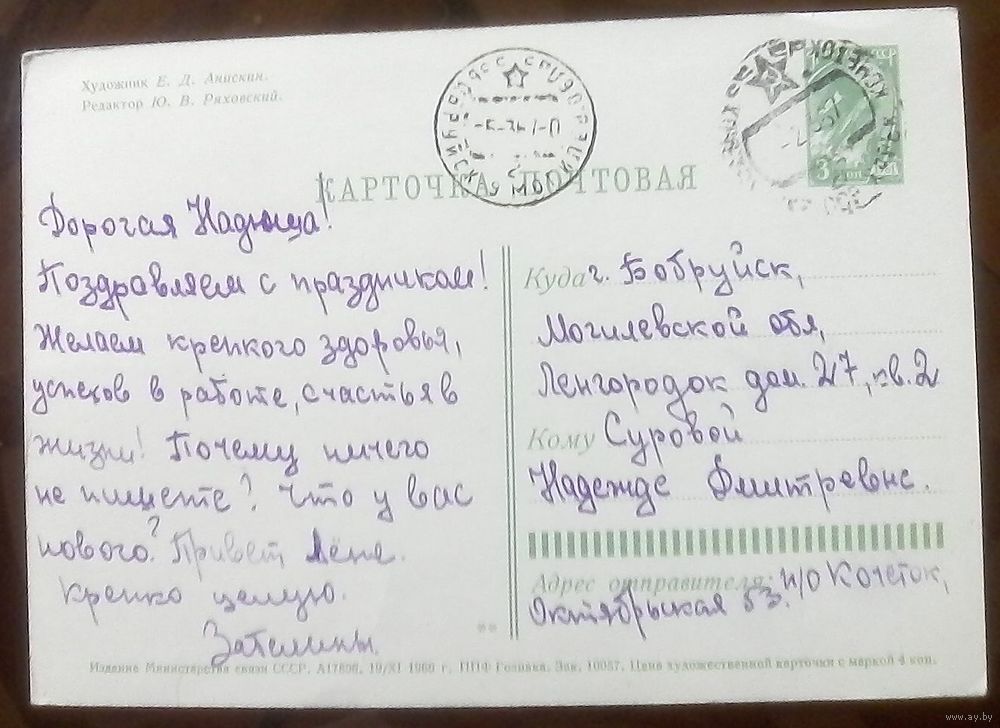 Художник Е. Д. Анискин.
Редактор Ю. В. Ряховский.
КАРТОЧКА ПОЧТОВАЯ
Дорогая Надюша!
Поздравляем с праздником!
Желаем крепкого здоровья,
успехов в работе, счастья в
жизни! Почему ничего
не пишете? Что у вас
нового? Привет Лёне.
Крепко целую.
Зателины.
Куда г. Бобруйск,
Могилевской обл,
Ленгородок дом. 27, кв. 2
Кому Суровой
Надежде Дмитревне.
Адрес отправителя: п/о Кочеток,
Октябрьская 53.
Издание Министерства связи СССР, 19/XI 1960 г. ППФ Гознака, Зак. 10087. Цена художественной карточки с маркой 4 коп.
www.ay.by